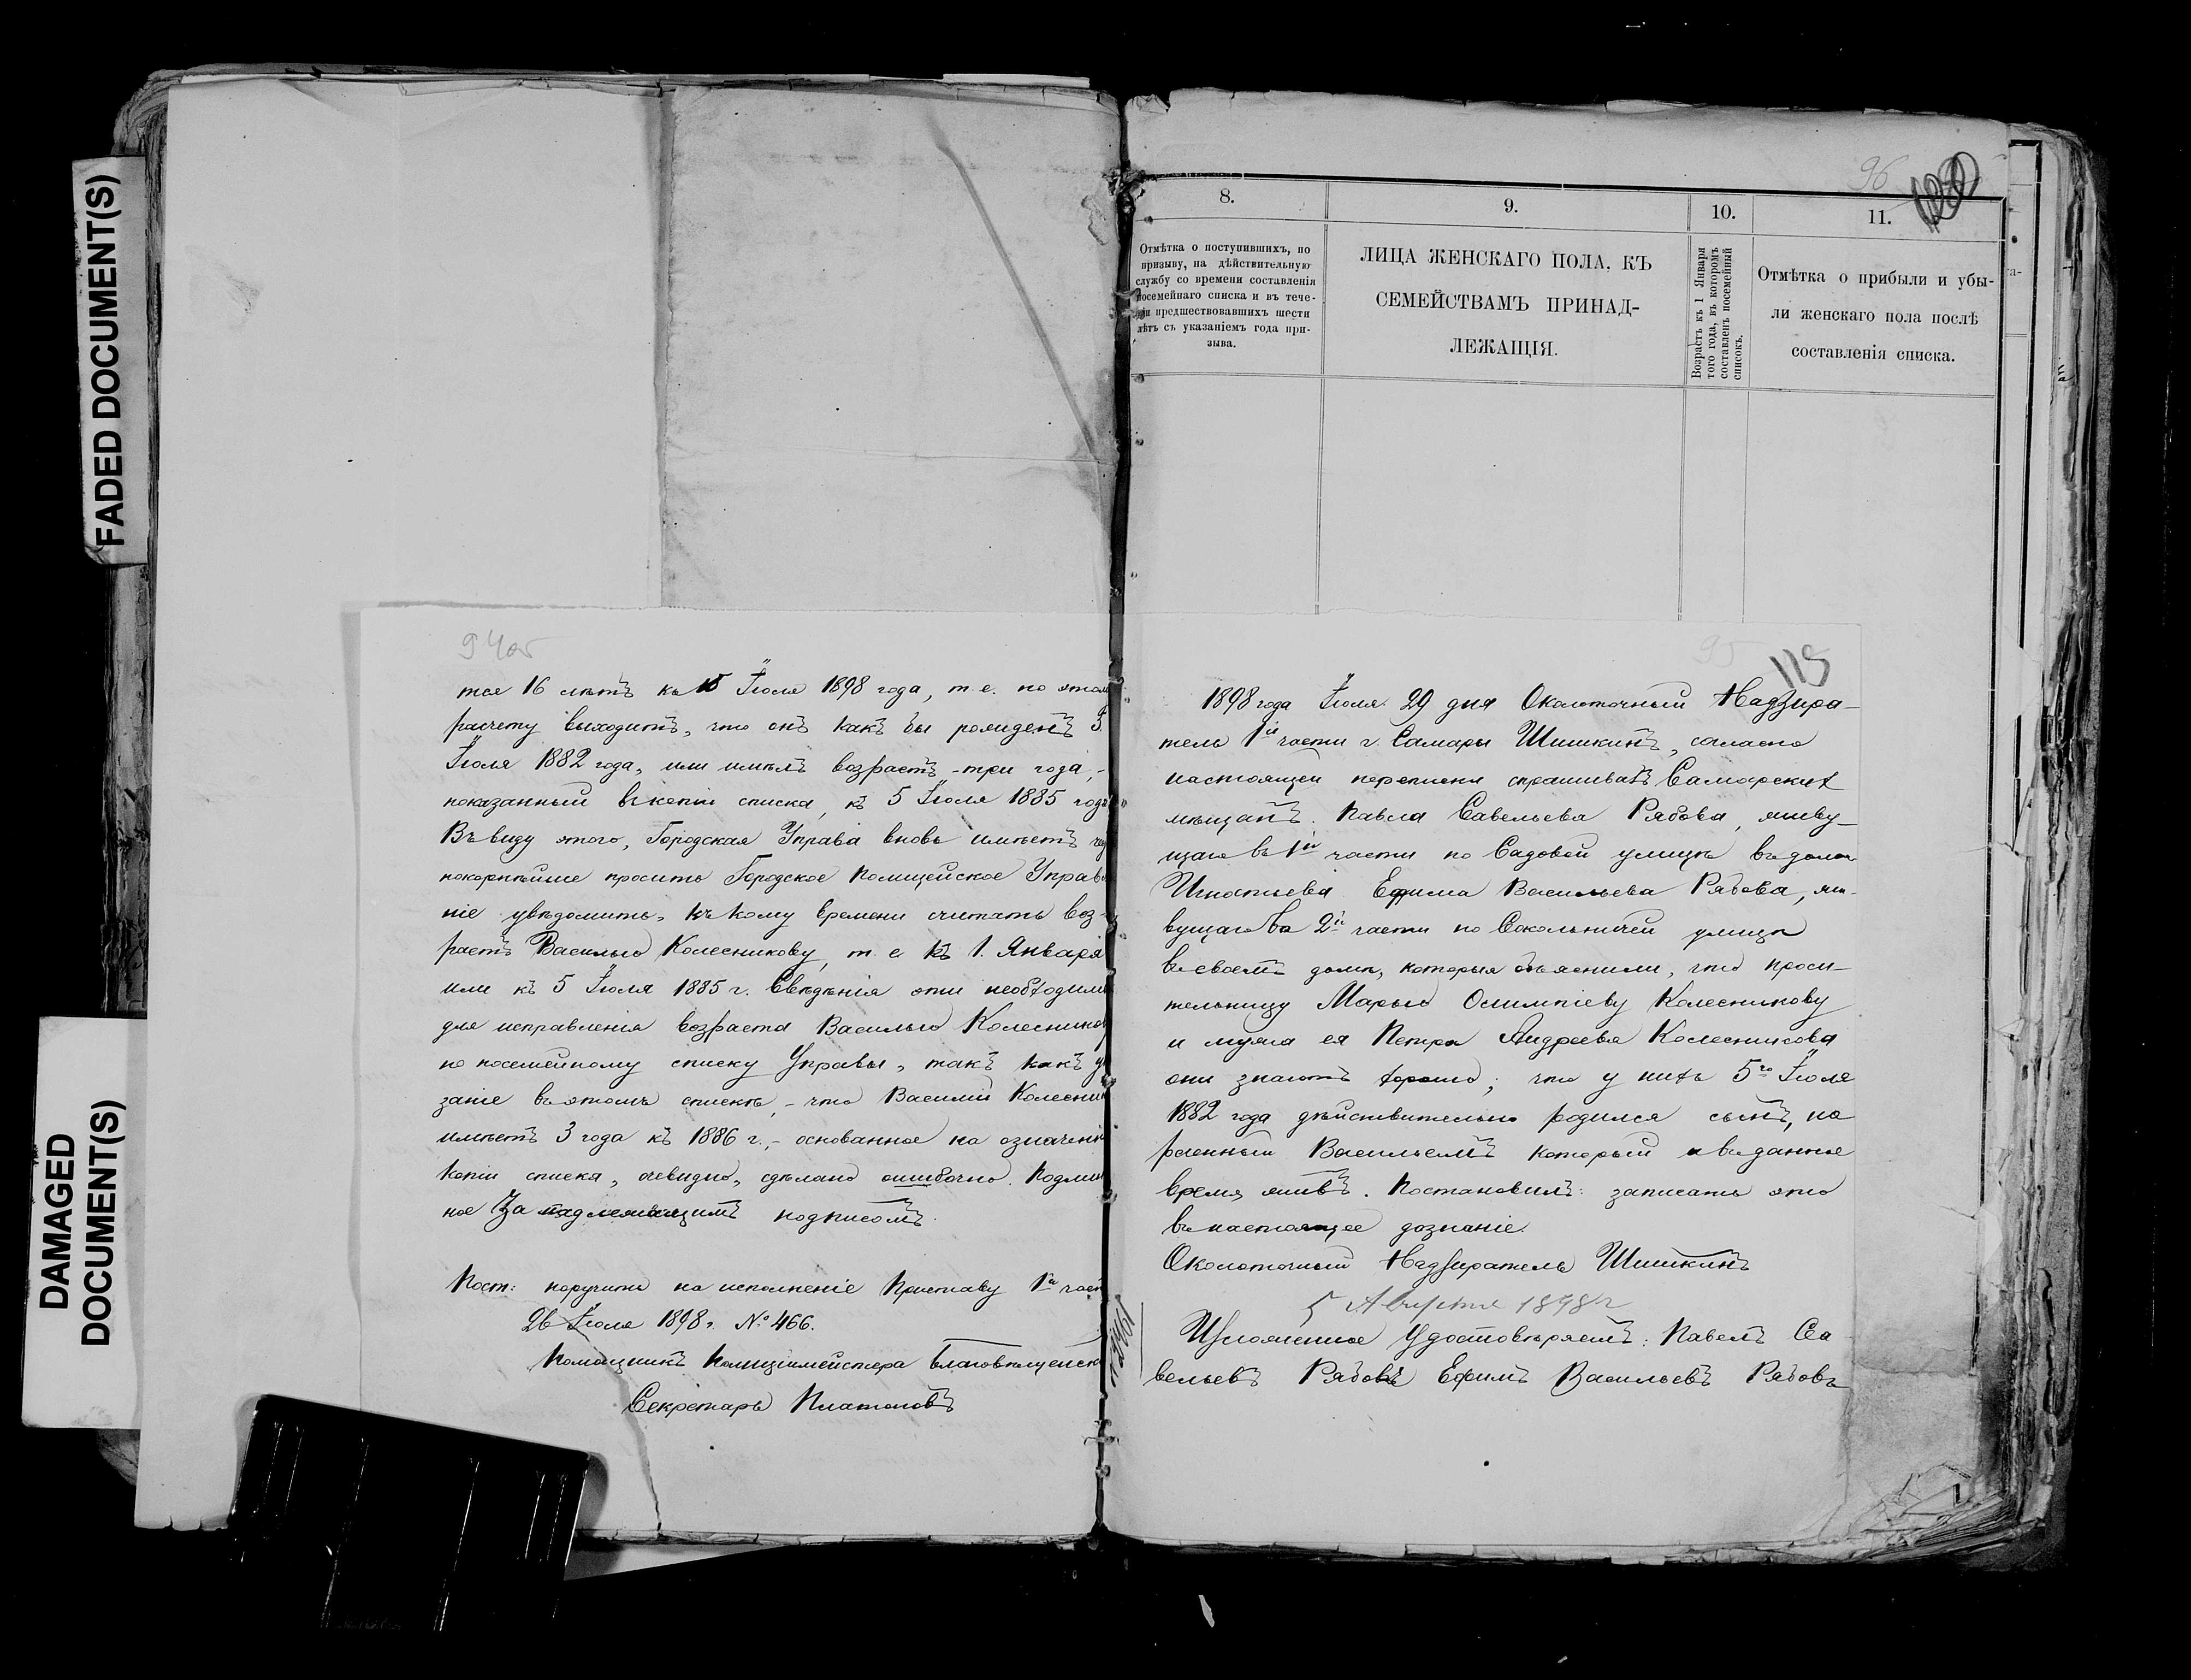 FADED DOCUMENT(S)
DAMAGED
DOCUMENT(S)
94об
тся 16 лѣтъ къ 5 Іюля 1898 года, т.е. по этом
расчету выходитъ, что онъ какъ бы рожденъ 5
Іюля 1882 года, или имѣлъ возрастъ - три года, -
показанный въ копіи списка, къ 5 Іюля 1885 год
Въ виду этого, Городская Управа вновь имѣетъ
покорнѣйше просить Городское Полицейское Управ
ніе увѣдомить, къ кому времени считать воз-
растъ Василью Колесникову, т.е. къ 1. Января
или къ 5 Іюля 1885 г. Свѣдѣнія эти необходимы
для исправленія возраста Василью Колесников
по посемейному списку Управы, такъ какъ ука
заніе въ этомъ спискѣ, - что Василий Колесни
имѣетъ 3 года къ 1886 г., - основанное на означенн
копіи списка, очевидно, сдѣлано ошибочно. Подлин
ное за надлежащимъ подписомъ.
Пост: поручить на исполненіе Приставу 1й част
26 Іюля 1898 г. № 466.
Помощникъ Полиціймейстера Благовѣщенск
Секретарь Платоновъ
96
8.
9.
10.
11.
Отмѣтка о поступившихъ, по
призыву, на дѣйствительную
службу со времени составленія
посемейнаго списка и въ тече-
ніи предшествовавшихъ шести
лѣтъ съ указаніемъ года при-
зыва.
ЛИЦА ЖЕНСКАГО ПОЛА, КЪ
СЕМЕЙСТВАМЪ ПРИНАД-
ЛЕЖАЩІЯ.
Возрастъ къ 1 Января
того года, въ которомъ
составленъ посемейный
списокъ.
Отмѣтка о прибыли и убы-
ли женскаго пола послѣ
составленія списка.
95
115
1898 года Іюля 29 дня Околоточный Надзира-
тель 1й части г. Самары Шишкинъ, согласно
настоящей переписки спрашивалъ Самарскихъ
мѣщанъ: Павла Савельева Рябова, живу-
щаго въ 1й части по Садовой улицѣ въ домѣ
Игнатьева Ефима Васильева Рябова, жи-
вущаго во 2й части по Сокольничей улицѣ
въ своемъ домѣ, которыя объяснили, что проси-
тельницу Марью Олимпіеву Колесникову
и мужа ея Петра Андреева Колесникова
они знаютъ хорошо; что у нихъ 5го Іюля
1882 года дѣйствительно родился сынъ, на
реченный Васильемъ который и въ данное
время живъ. Постановилъ: записать это
въ настоящее дознаніе.
Околоточный Надзиратель Шишкинъ
5 Августа 1898 г
Изложенное удостовѣряемъ: Павелъ Са
вельевъ Рябовъ Ефимъ Васильевъ Рябовъ